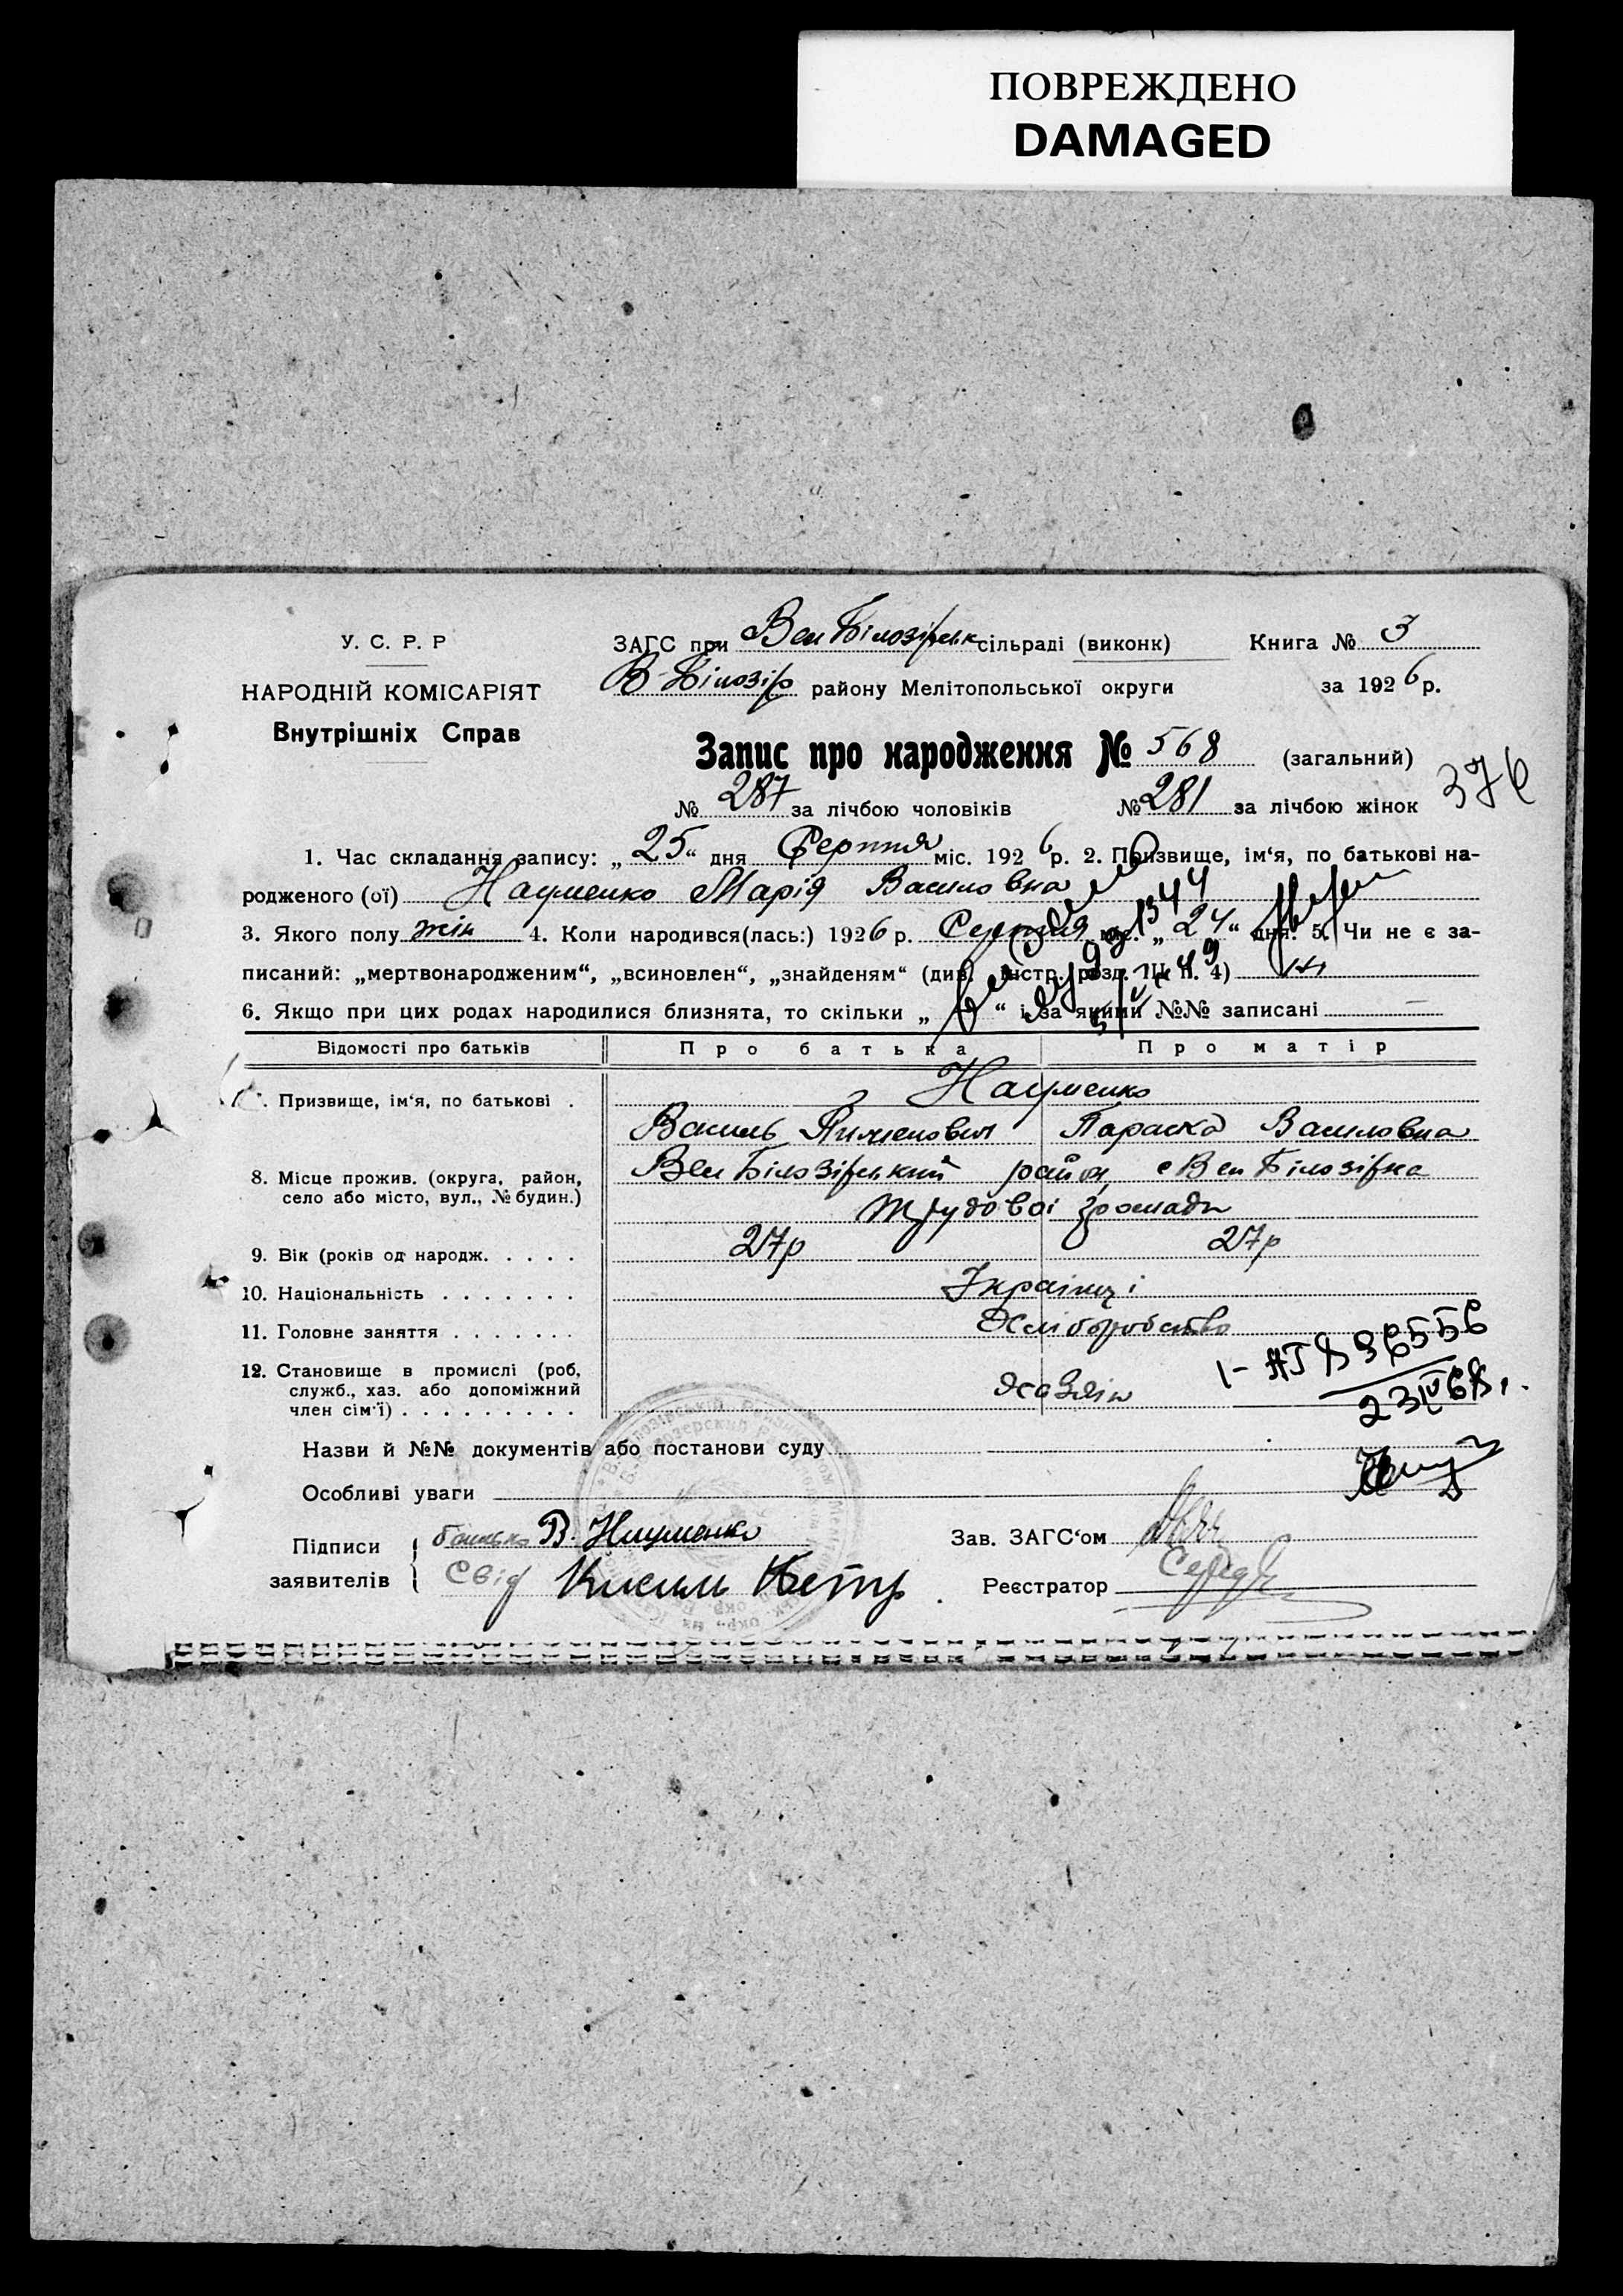 ПОВРЕЖДЕНО
DAMAGED
У. С. Р. Р
НАРОДНІЙ КОМІСАРІЯТ
Внутрішніх Справ
ЗАГС при Вел Білозірськ сільраді (виконк)
В-Білозір району Мелітопольської округи
Книга № 3
за 1926 р.
Запис про народження № 568 (загальний)
376
№ 287 за лічбою чоловіків № 281 за лічбою жінок
1. Час складання запису: „25“ дня Серпня міс. 1926 р. 2. Призвище, ім‘я, по батькові на-
родженого (ої) Науменко Марія Василовна
3. Якого полу жін 4. Коли народився(лась:) 1926 р. Серпня міс. „24“ дня. 5. Чи не є за-
писаний: „мертвонародженим“, „всиновлен“, „знайденям“ (див. інстр. розд. III п. 4)
6. Якщо при цих родах народилися близнята, то скільки „ “ і за якими №№ записані
Відомості про батьків Про батька Про матір
Призвище, ім‘я, по батькові .
Науменко
Василь Пименович Параска Василовна
8. Місце прожив. (округа, район,
село або місто, вул., № будин.)
Вел Білозірський район, с Вел Білозірка
Трудової громади
9. Вік (років од народж. . . . . 27р 27р
10. Національність . . . . . . . Українці
11. Головне заняття . . . . . . . Хліборобство
12. Становище в промислі (роб,
служб., хаз. або допоміжний
член сім‘ї) . . . . . . . . .
Хазяїн
23/IV 68г.
Назви й №№ документів або постанови суду
Особливі уваги
Підписи
заявителів
батько В. Науменко
Свід Кисиль Петр
Зав. ЗАГС‘ом
Реєстратор